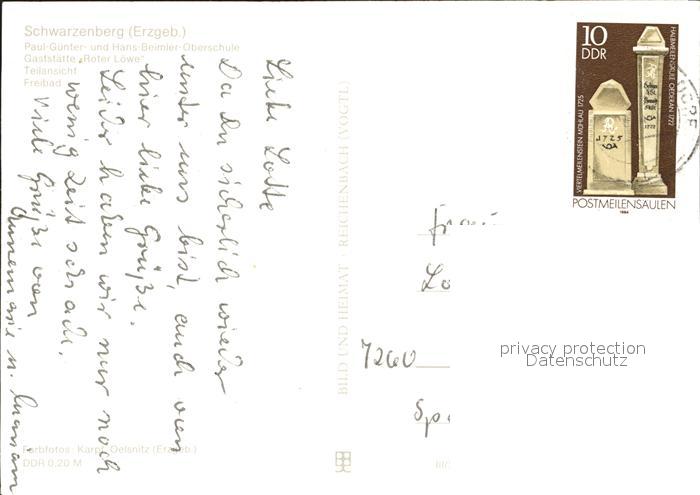 Schwarzenberg (Erzgeb.)
Paul-Günter- und Hans-Beimler-Oberschule
Gaststätte „Roter Löwe“
Teilansicht
Freibad
Liebe Lotte
Da du sicherlich wieder
unter uns bist, auch von
hier liebe Grüße.
Leider haben wir nur noch
wenig Zeit schade.
Viele Grüße von
Annemarie u.
Farbfotos: Karpf, Oelsnitz (Erzgeb.)
DDR 0,20 M
BILD UND HEIMAT · REICHENBACH (VOGTL)
10
DDR
VIERTELMEILENSTEIN MÜHLAU 1725
HALBMEILENSÄULE OEDERAN 1722
1725
1722
POSTMEILENSÄULEN
1984
Frau
Lo
7260
Sp
privacy protection
Datenschutz